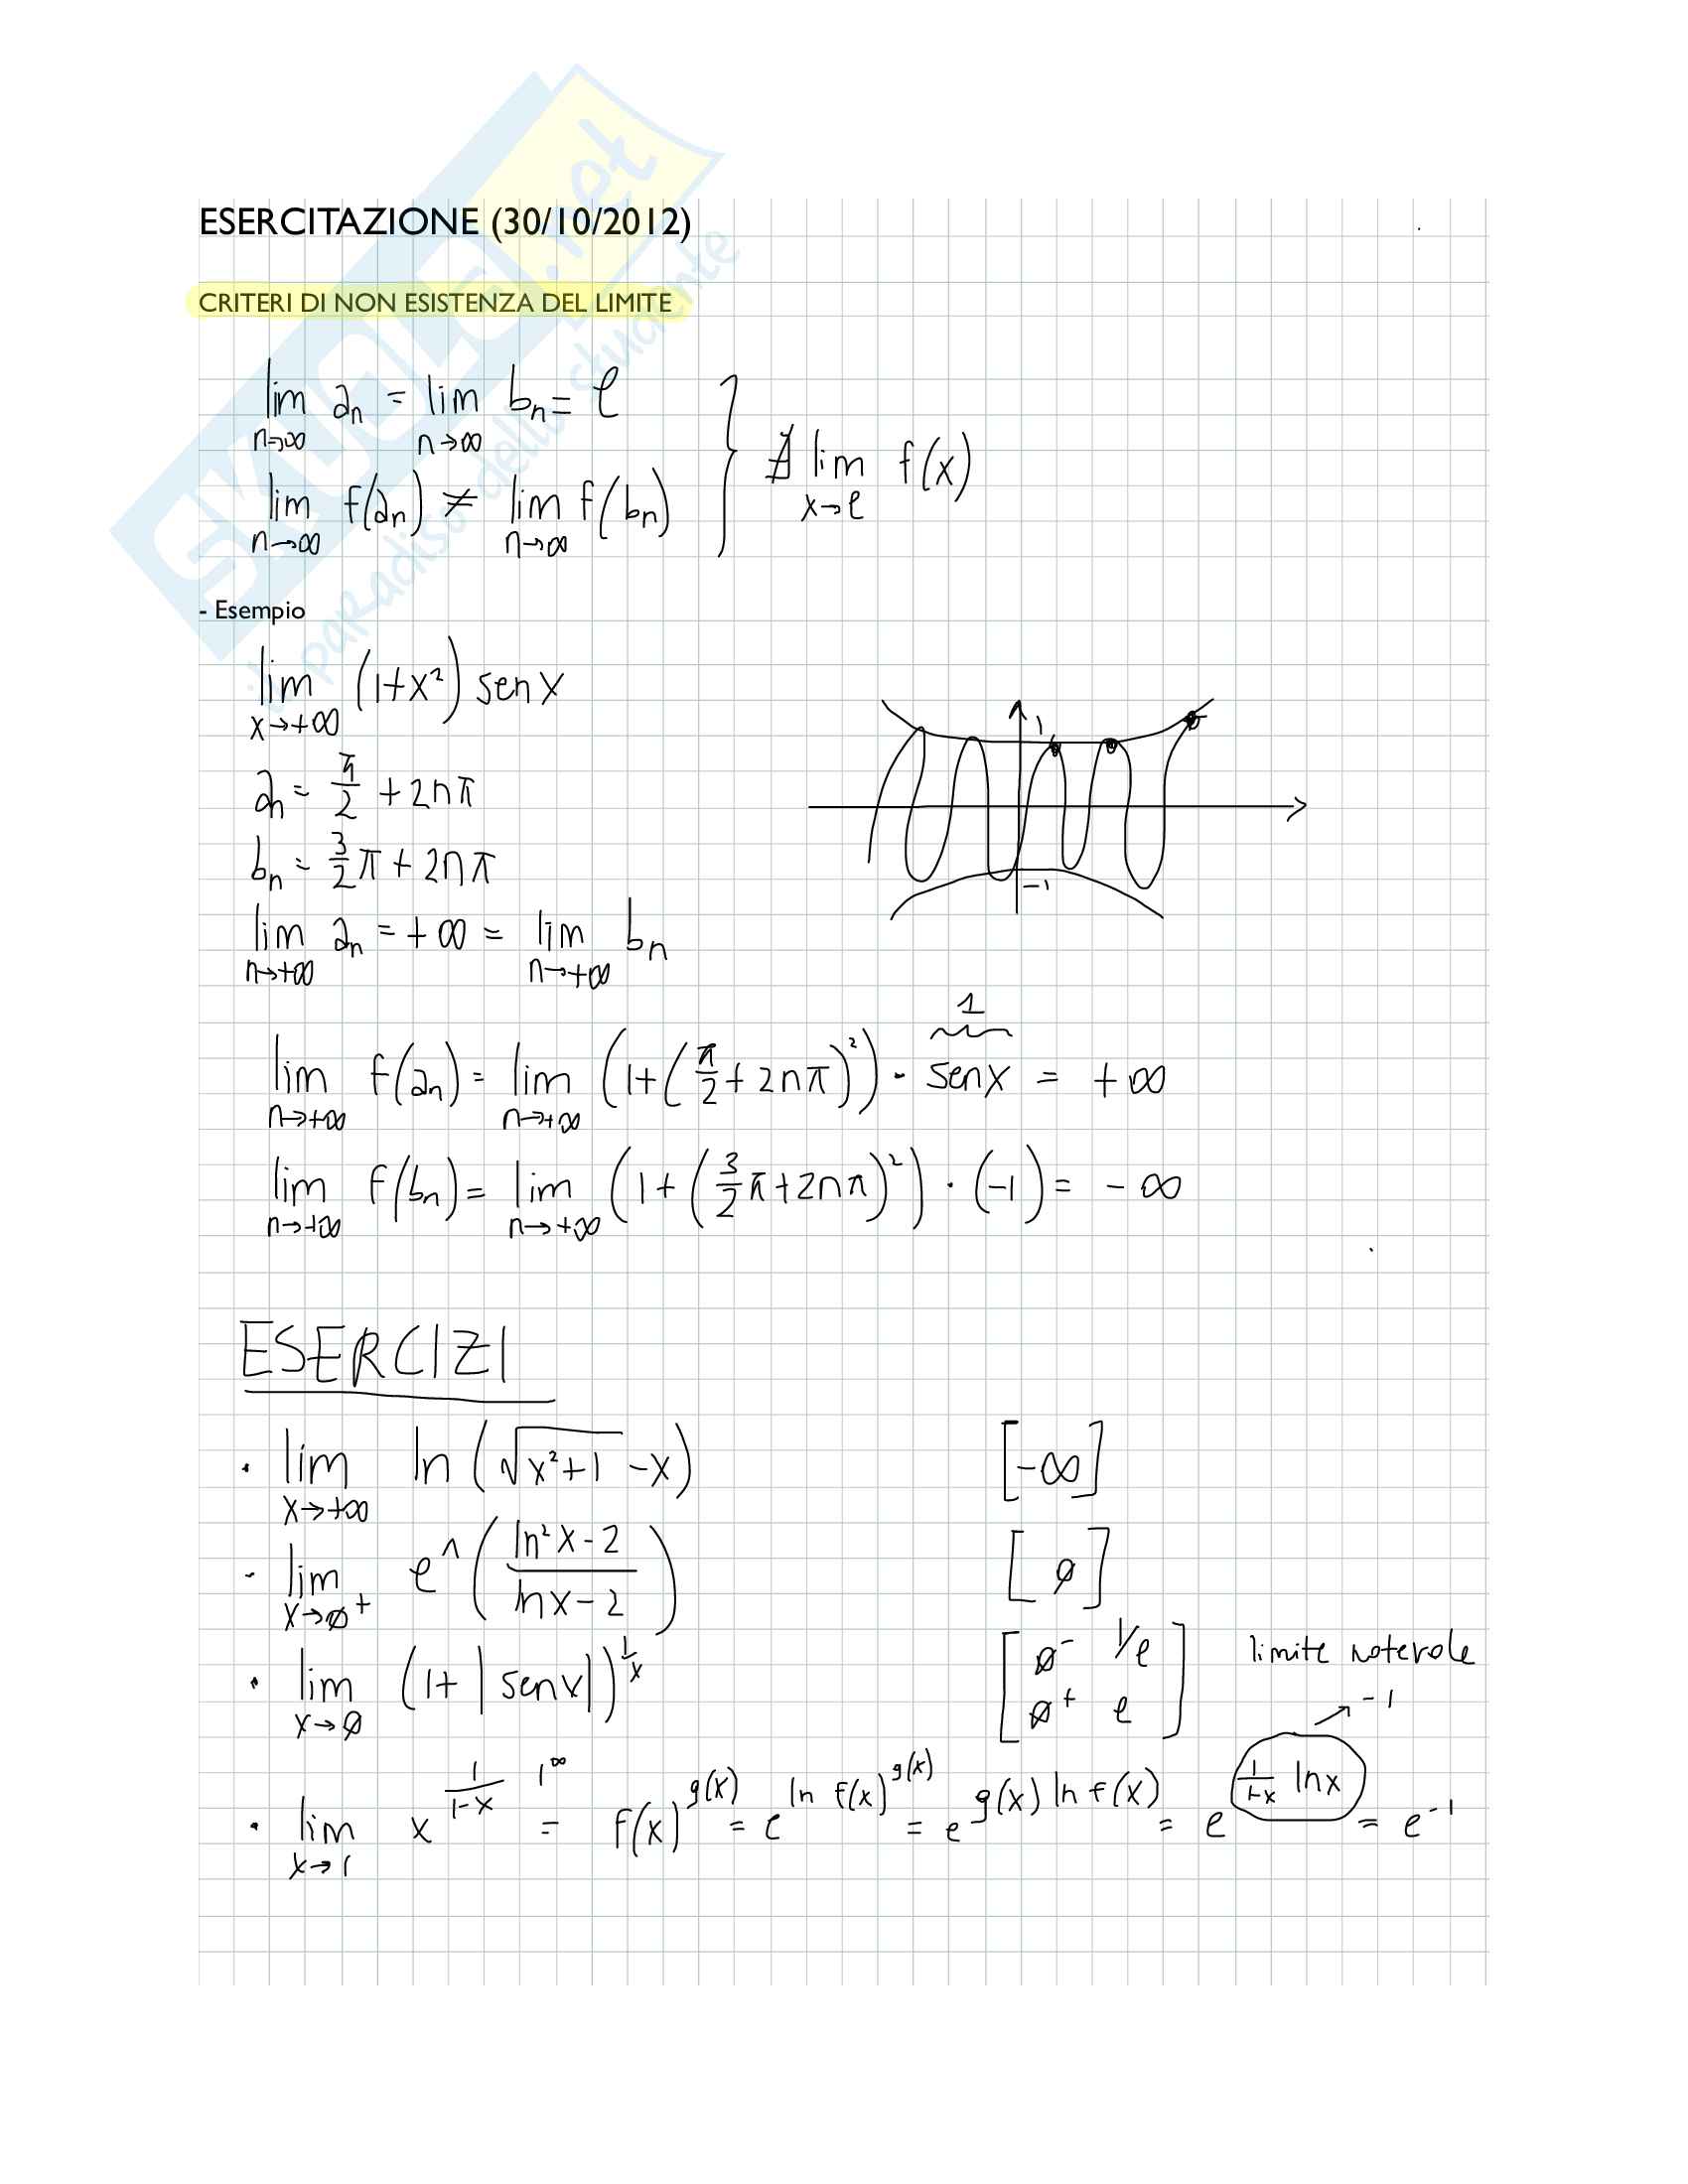 SKUOLA.net
il paradiso dello studente
ESERCITAZIONE (30/10/2012)
CRITERI DI NON ESISTENZA DEL LIMITE
lim n→∞ an = lim n→∞ bn = ℓ
lim n→∞ f(an) ≠ lim n→∞ f(bn) } ∄ lim x→ℓ f(x)
- Esempio
lim x→+∞ (1+x²) sen x
an = π/2 + 2nπ
bn = 3/2 π + 2nπ
1
-1
lim n→+∞ an = +∞ = lim n→+∞ bn
1
lim n→+∞ f(an) = lim n→+∞ (1+(π/2 + 2nπ)²) · sen x = +∞
lim n→+∞ f(bn) = lim n→+∞ (1+(3/2 π + 2nπ)²) · (-1) = -∞
ESERCIZI
· lim x→+∞ ln(√(x²+1) - x) [-∞]
- lim x→0+ e^((ln²x - 2)/(ln x - 2)) [0]
· lim x→0 (1+|sen x|)^(1/x) [0⁻ 1/e 0⁺ e] limite notevole
→ -1
· lim x→1 x^(1/(1-x)) 1^∞ = f(x)^g(x) = e^(ln f(x)^g(x)) = e^(g(x) ln f(x)) = e^(1/(1-x) ln x) = e^-1